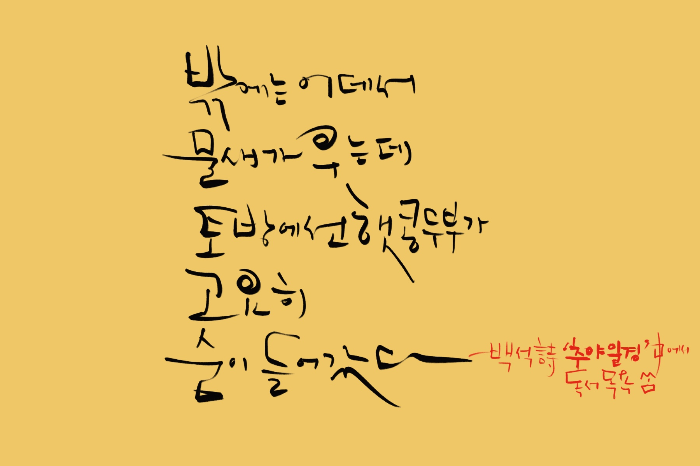 밖에는 어데서
물새가 우는데
토방에선 햇콩두부가
고요히
숨이 들어갔다
백석 詩 '추야일경' 中에서
독서목욕 씀